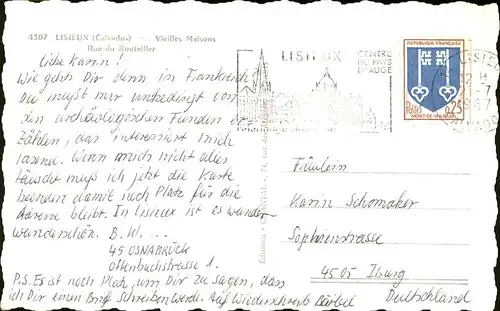 4507 LISIEUX (Calvados) - Vieilles Maisons
Rue du Bouteiller
Liebe Karin!
Wie geht's Dir denn in Frankreich?
Du mußt mir unbedingt von
den archäologischen Funden er-
zählen, das interessiert mich
rasend. Wenn mich nicht alles
täuscht muß ich jetzt die Karte
beenden damit noch Platz für die
Adresse bleibt. In Lisieux ist es wunder-
wunderschön. B. W....
45 OSNABRÜCK
Offenbachstrasse 1
P.S. Es ist noch Platz, um Dir zu sagen, das
ich Dir einen Brief schreiben werde. Auf Wiederschreib Bärbel
LISIEUX
CENTRE
DU PAYS
D'AUGE
REPUBLIQUE FRANÇAISE
Postes 0,25
MONT-DE-MARSAN
LISIEUX
12 H
-7
1967
Fräulein
Karin Schomaker
Sophienstrasse
4505 Iburg
Deutschland